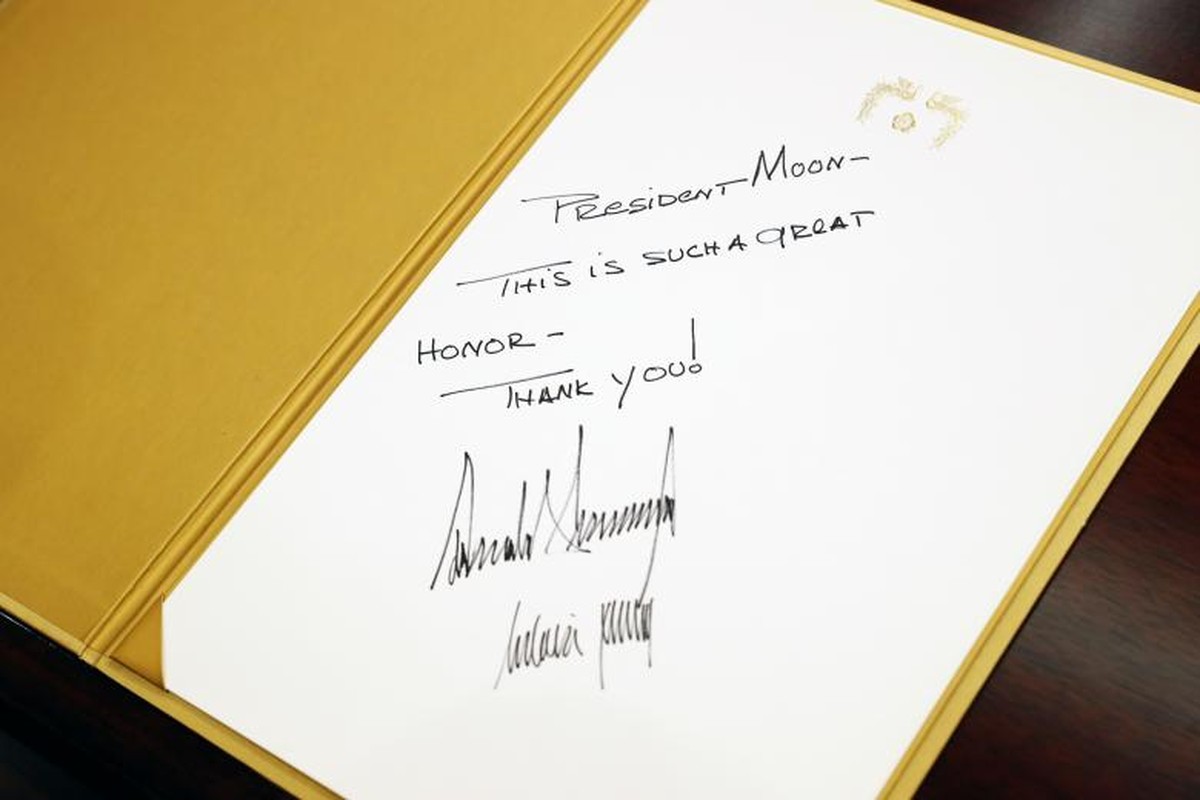 PRESIDENT MOON-
THIS IS SUCH A GREAT
HONOR -
THANK YOU!
Donald Trump
Melania Trump